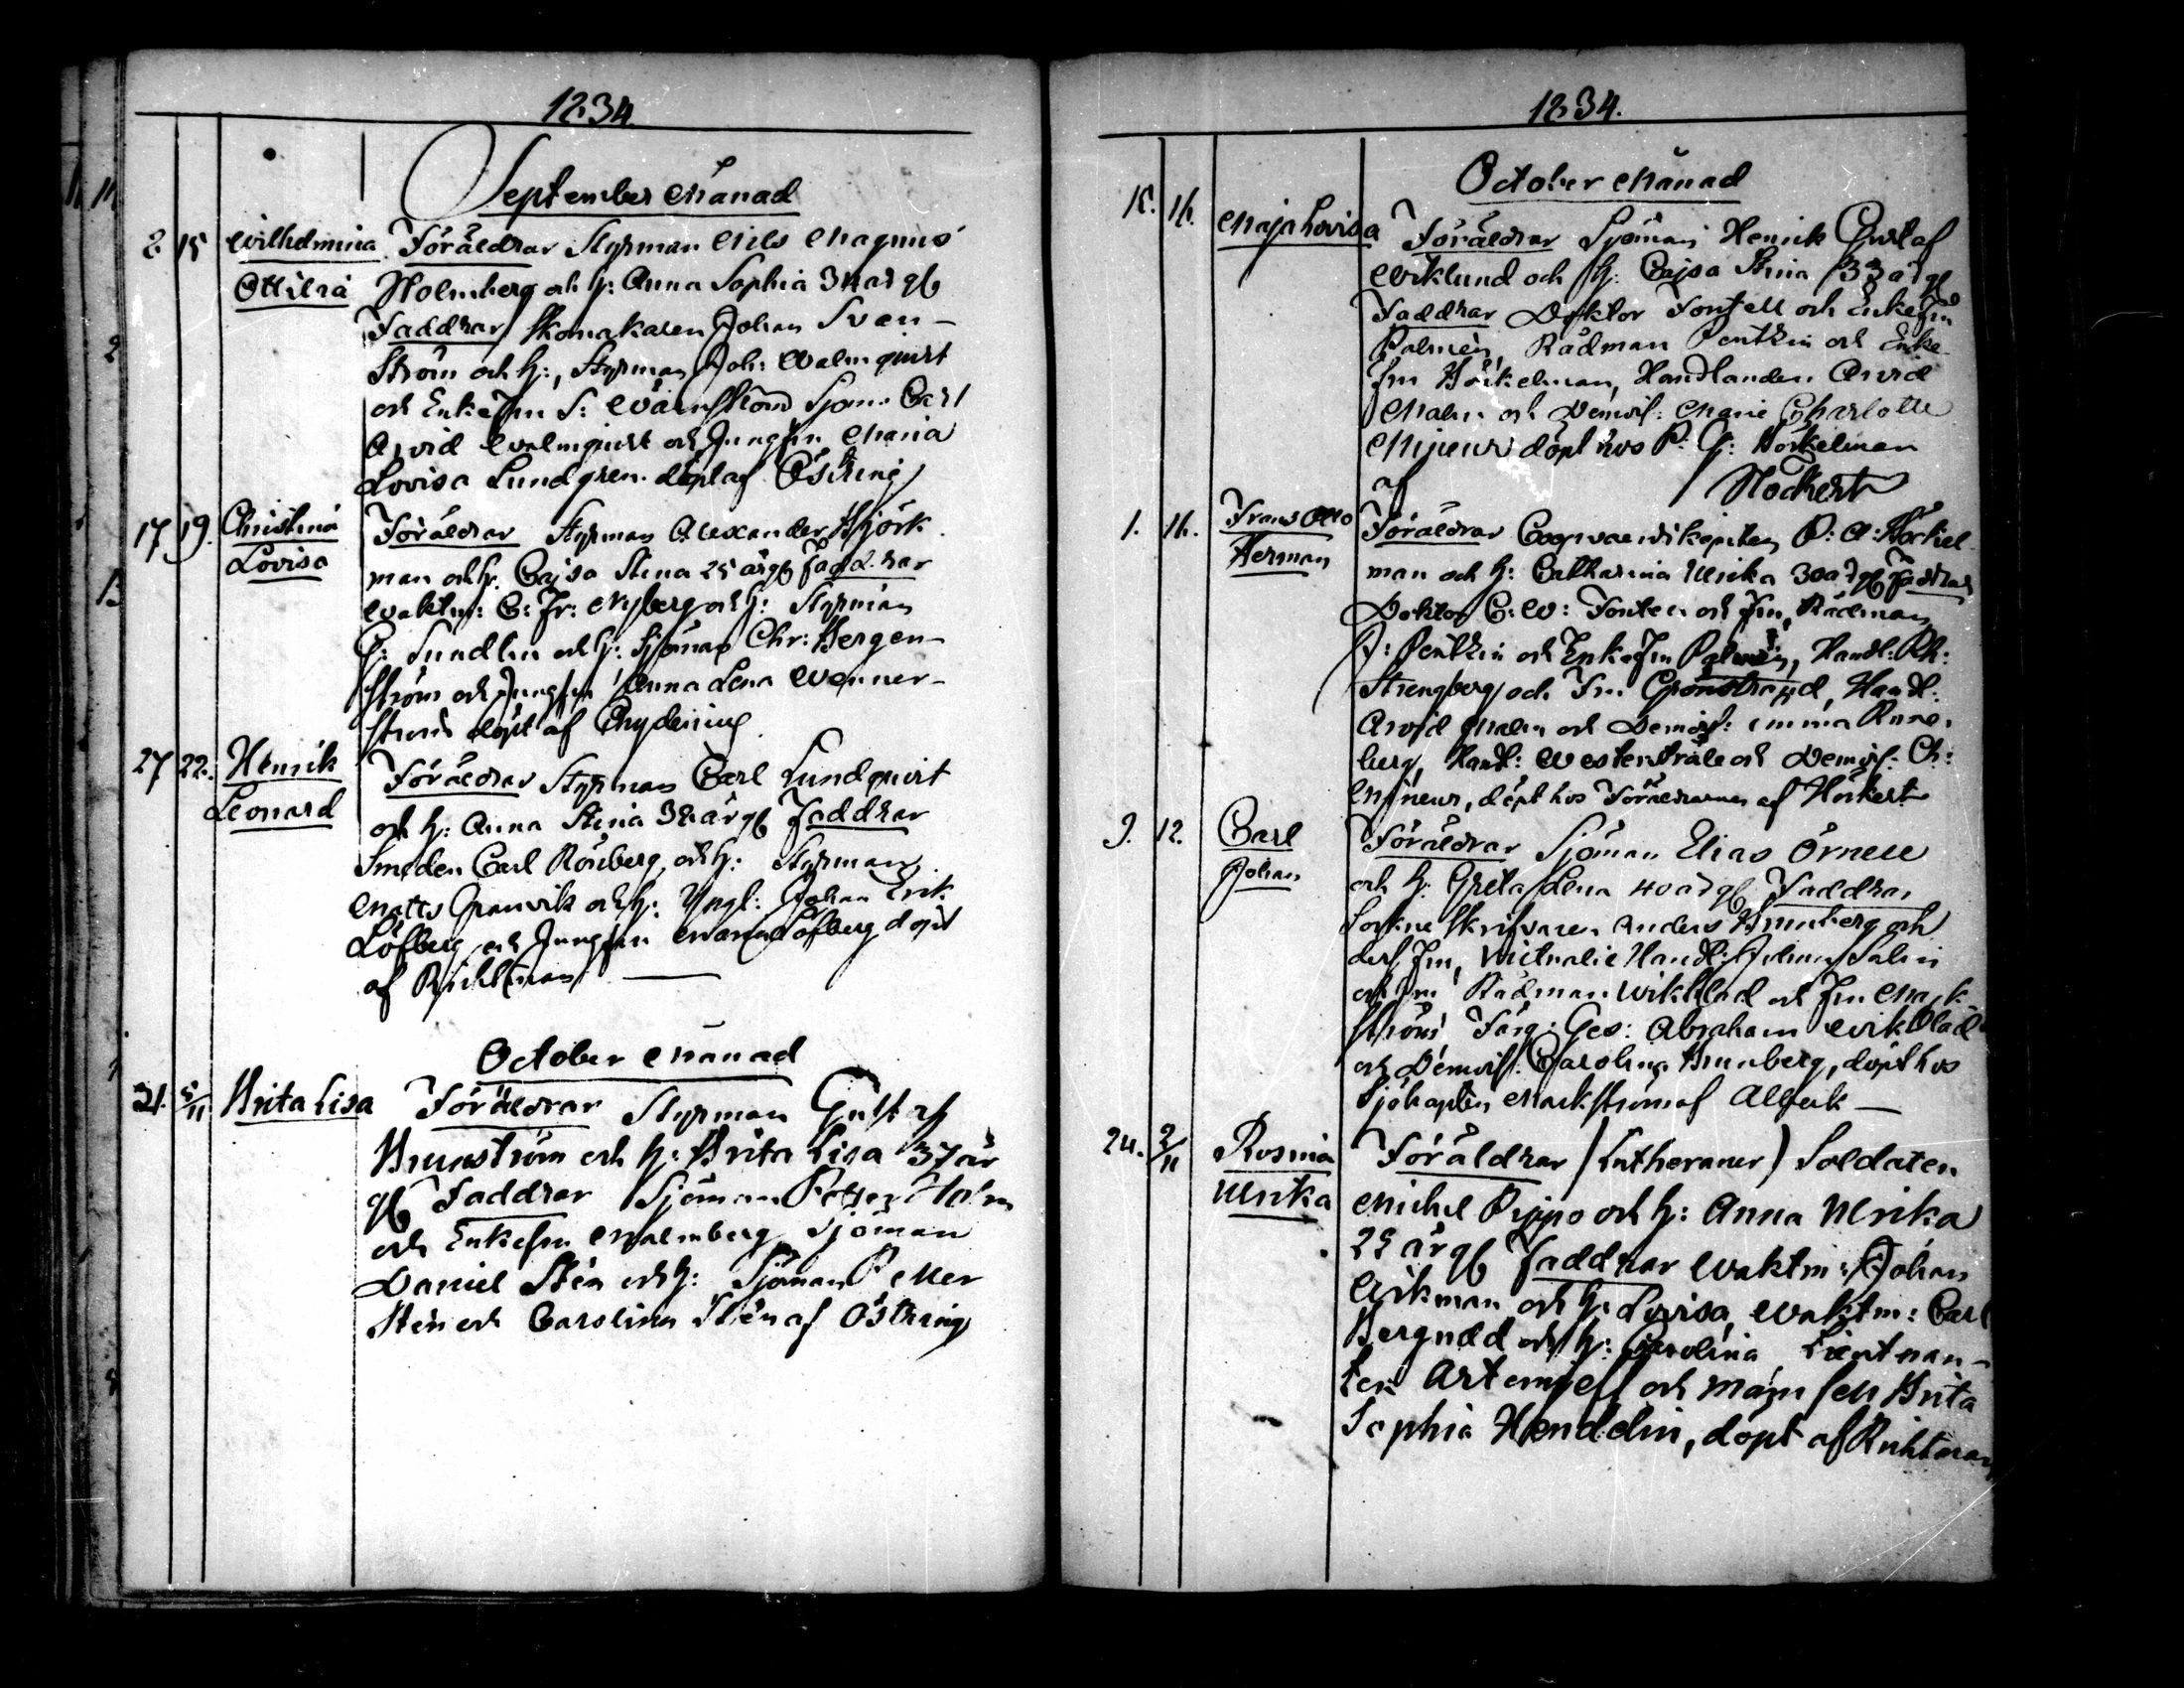 1834.
September Månad
8 15 Wilhelmina Föräldrar Styrman Nils Magnus
Ottilia Holmberg och h: Anna Sophia 34 år gl
Faddrar Skomakaren Johan Sven-
ström och h:, Styrman Joh: Malmquist
och Enkefru S: Wärnström Sjöm: Carl
Arvid Malmquist och Jungfru Maria
Lovisa Lundgren. döpt af Östring
17 19. Christina Föräldrar Styrman Alexander Björk
Lovisa man och h. Cajsa Stina 25 år gl Faddrar
Waktm: C: Fr: Nyberg och h: Styrman
G: Sundlin och h: Sjöman Chr: Bergen-
ström och Jungfru Anna Lena Wenner-
ström döpt af Chydenius
27 22. Henrik Föräldrar Styrman Carl Lundquist
Leonard och h: Anna Stina 38 år gl Faddrar
Smeden Carl Rönberg och h: Styrman
Matts Granvik och h: Yngl: Johan Erik
Löfberg och Jungfru Maria Löfberg döpt
af Richtman
October Månad
21. 5/11 Brita Lisa Föräldrar Styrman Gustaf
Brunström och h: Brita Lisa 37 år
gl Faddrar Sjöman Petter Holm
och Enkefru Malmberg Sjöman
Daniel Stén och h: Sjöman Petter
Stén och Carolina Stén af Östring
1834.
October Månad
15. 16. Maja Lovisa Föräldrar Sjöman Henrik Gustaf
Wiklund och h: Cajsa Stina 33 år gl
Faddrar Doktor Fontell och Enkefru
Palmén, Rådman Pentzin och Enke-
fru Höckelman, Handlanden Arvid
Malm och Demois: Marie Charlotte
döpt hos P: G: Höckelman
af Höckert
1. 16. Frans Otto Föräldrar Coopvaerdikapiten P: A: Höckel
Herman man och h: Catharina Ulrika 30 år gl Faddrar
Doktor C: W: Fontell och Fru, Rådman
P: Pentzin och Enkefru Palmén, Handl:
Strengberg och Fru Grönstrand, Handl:
Arvid Malm och Demois: Emma Rune-
berg, Handl: Westerstråle och Demois: Ch:
döpt hos Föräldrarna af Höckert
9. 12. Carl Föräldrar Sjöman Elias Örnell
Johan och h: Greta Lena 40 år gl Faddrar
Sockne Skrifvaren Anders Brunberg och
dess Fru, Victualie Handl: Johan Salin
och Fru Rådman Wikblad och Fru Mark-
ström, Färg: Ges: Abraham Wikblad
och Demois: Carolina Brunberg, döpt hos
Sjökapten Markström af Alfvik —
24. 2/11 Rosina Föräldrar (Lutheraner) Soldaten
Ulrika Michel Peppo och h: Anna Ulrika
25 år gl Faddrar Waktm: Johan
och h: Lovisa, Waktm: Carl
Bergnäd och h: Carolina Lieutnan-
ten Artemjeff och Mamsell Brita
Sophia Hendelin, döpt af Richtman